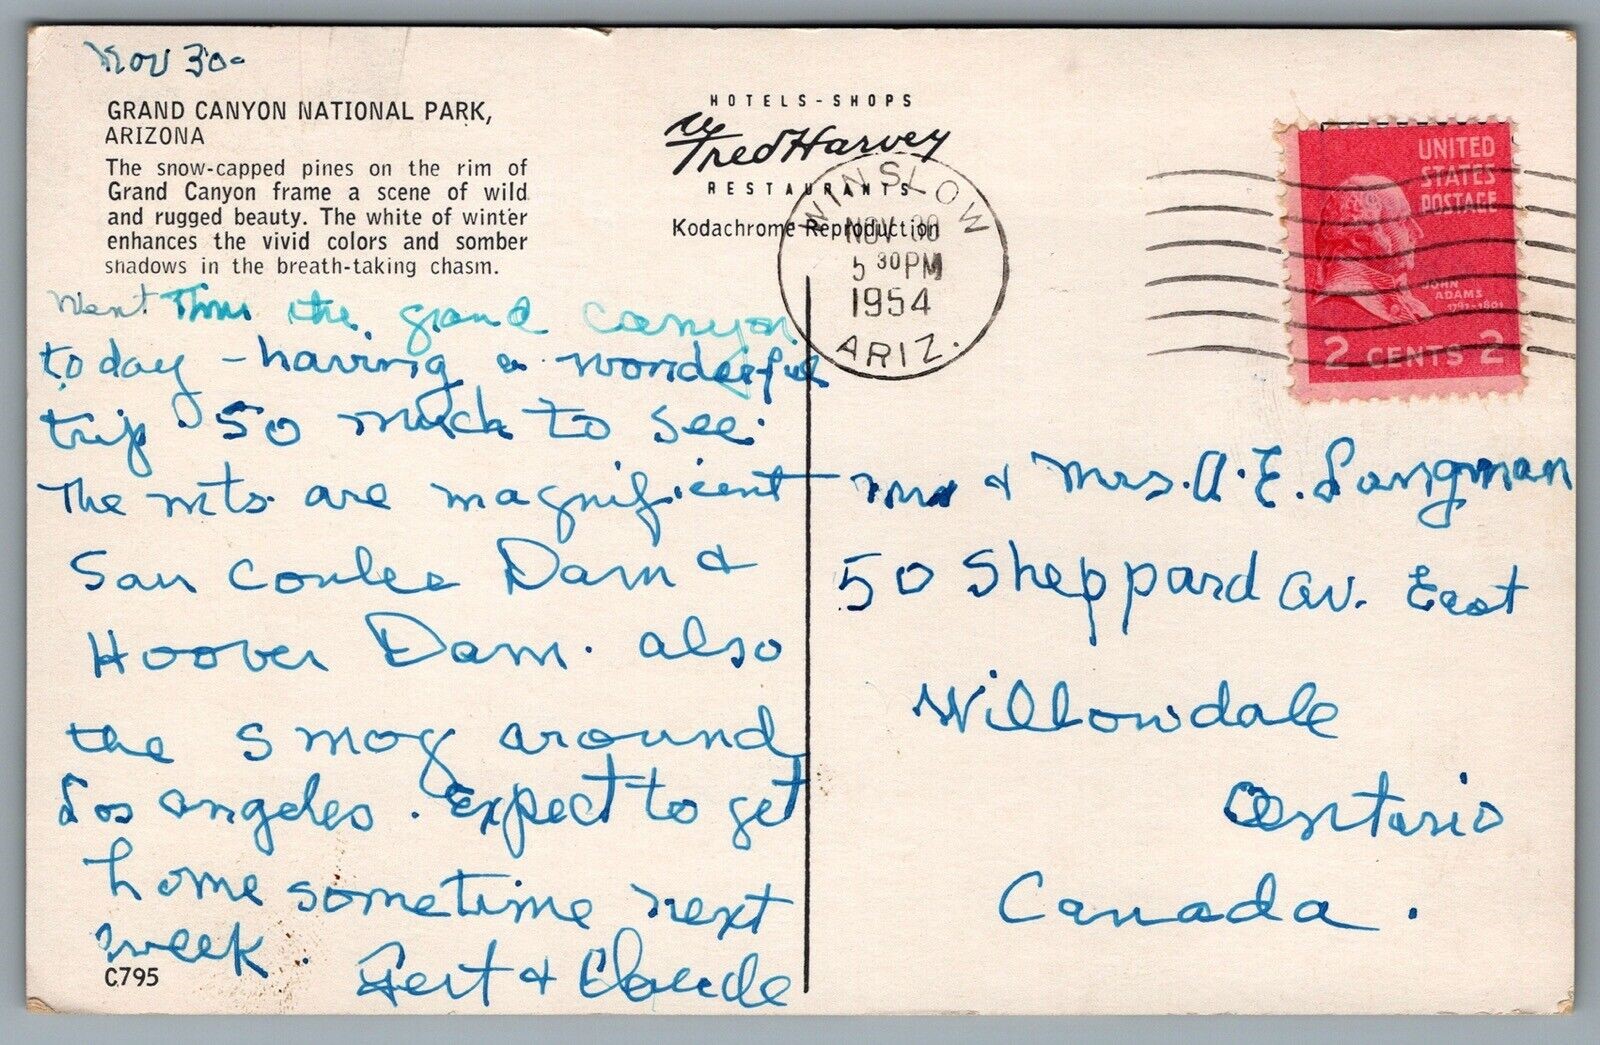 Nov 30-
GRAND CANYON NATIONAL PARK,
ARIZONA
The snow-capped pines on the rim of
Grand Canyon frame a scene of wild
and rugged beauty. The white of winter
enhances the vivid colors and somber
shadows in the breath-taking chasm.
Went Thru the grand canyon
today - having a wonderful
trip. So much to see.
The mts. are magnificent
Saw Coulee Dam &
Hoover Dam. also
the smog around
Los Angeles. Expect to get
home sometime next
week.
Gert & Claude
C795
HOTELS-SHOPS
Fred Harvey
RESTAURANTS
Kodachrome Reproduction
WINSLOW
NOV 30
5 30 PM
1954
ARIZ.
UNITED
STATES
POSTAGE
JOHN
ADAMS
1797-1801
2 CENTS 2
Mr & Mrs. A. E. Langman
50 Sheppard Av. East
Willowdale
Ontario
Canada.